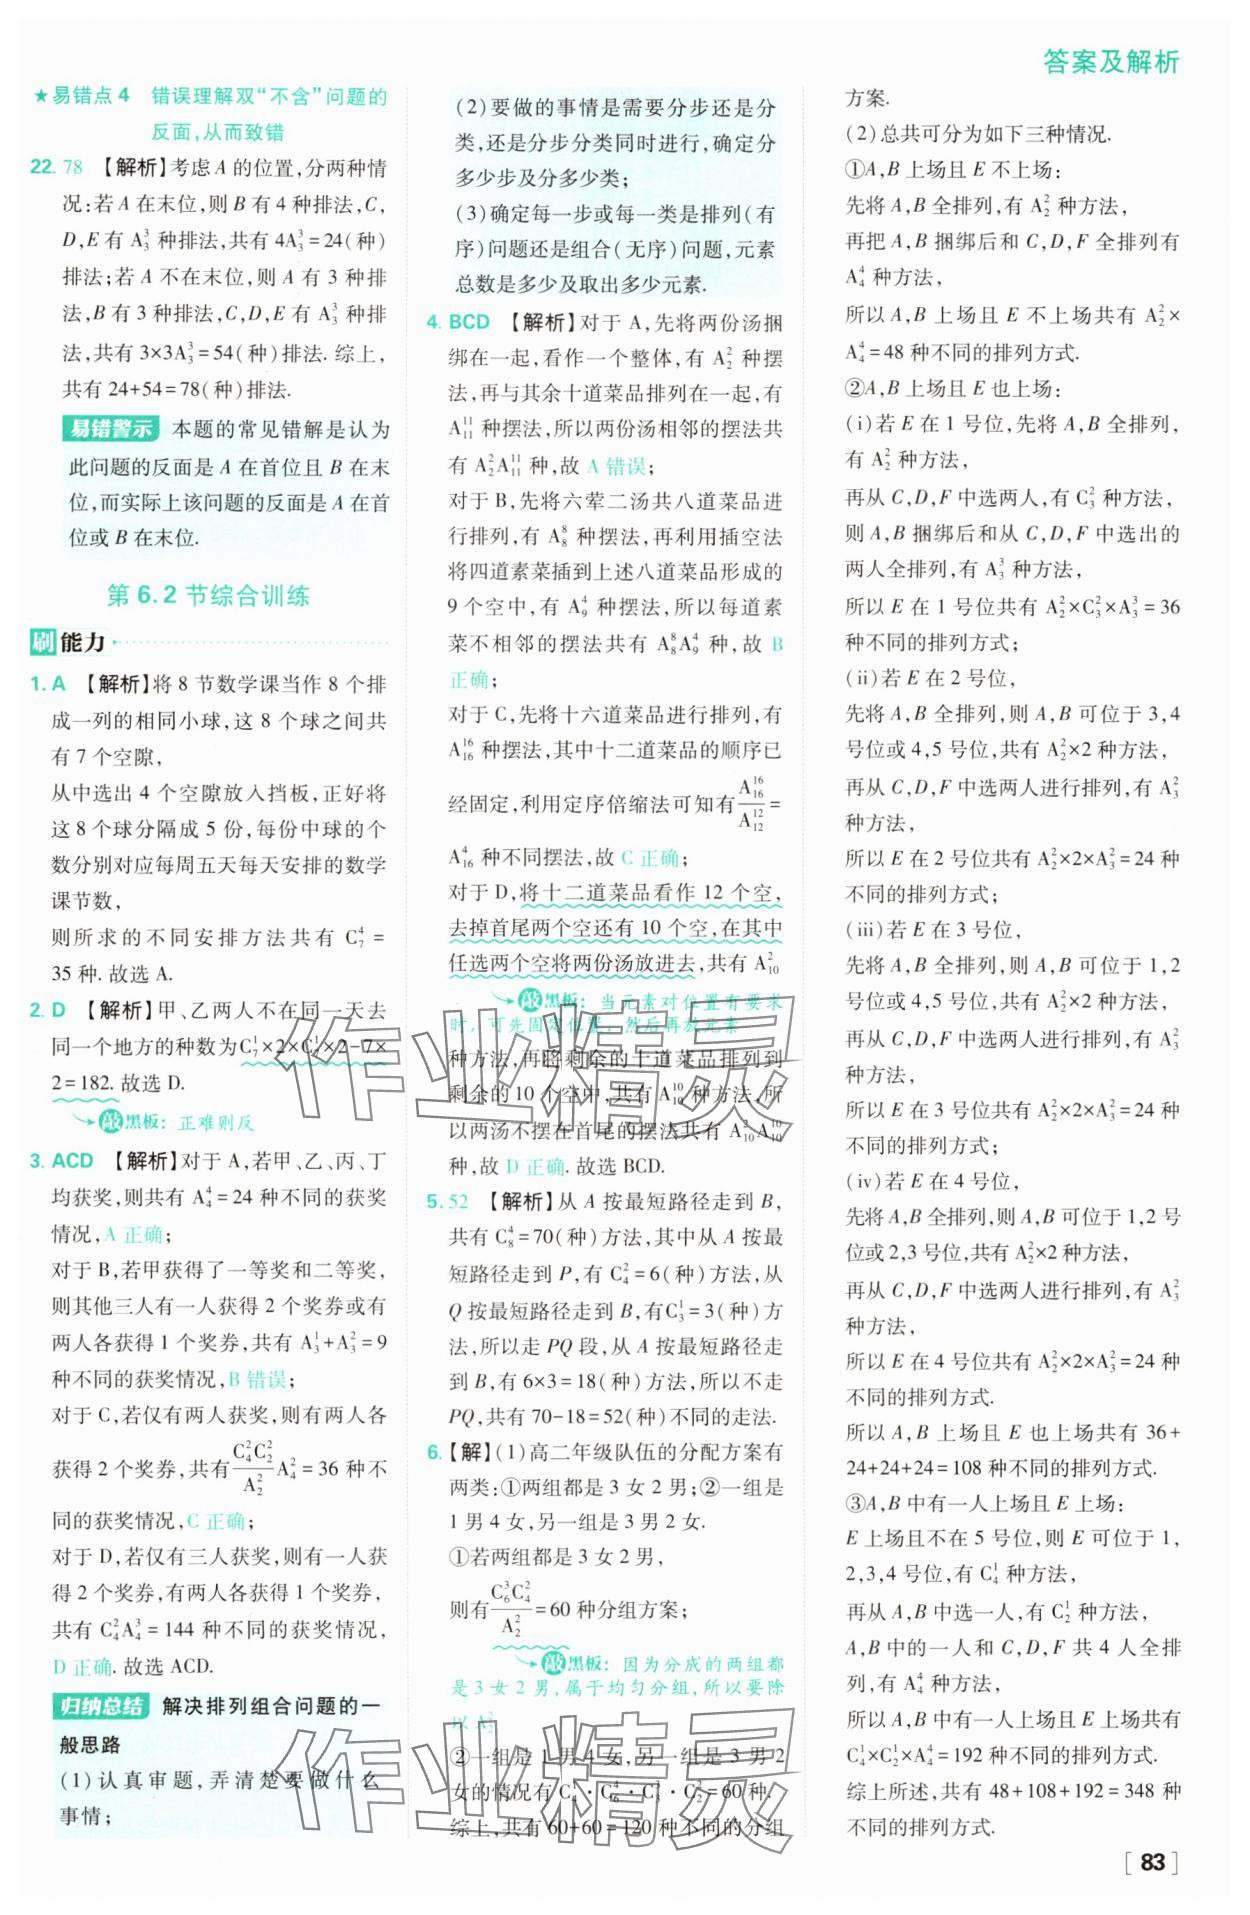 答案及解析
★易错点4 错误理解双“不含”问题的
反面,从而致错
22. 78 【解析】考虑 A 的位置,分两种情
况:若 A 在末位,则 B 有 4 种排法,C,
D,E 有 A₃³ 种排法,共有 4A₃³=24(种)
排法;若 A 不在末位,则 A 有 3 种排
法,B 有 3 种排法,C,D,E 有 A₃³ 种排
法,共有 3×3A₃³=54(种)排法. 综上,
共有 24+54=78(种)排法.
易错警示 本题的常见错解是认为
此问题的反面是 A 在首位且 B 在末
位,而实际上该问题的反面是 A 在首
位或 B 在末位.
第 6.2 节综合训练
刷能力
1. A 【解析】将 8 节数学课当作 8 个排
成一列的相同小球,这 8 个球之间共
有 7 个空隙,
从中选出 4 个空隙放入挡板,正好将
这 8 个球分隔成 5 份,每份中球的个
数分别对应每周五天每天安排的数学
课节数,
则所求的不同安排方法共有 C₇⁴=
35 种. 故选 A.
2. D 【解析】甲、乙两人不在同一天去
同一个地方的种数为C₇¹×2×C₇¹×2-7×
2=182. 故选 D.
敲黑板: 正难则反
3. ACD 【解析】对于 A,若甲、乙、丙、丁
均获奖,则共有 A₄⁴=24 种不同的获奖
情况,A 正确;
对于 B,若甲获得了一等奖和二等奖,
则其他三人有一人获得 2 个奖券或有
两人各获得 1 个奖券,共有 A₃¹+A₃²=9
种不同的获奖情况,B 错误;
对于 C,若仅有两人获奖,则有两人各
获得 2 个奖券,共有(C₄²C₂²/A₂²)A₄²=36 种不
同的获奖情况,C 正确;
对于 D,若仅有三人获奖,则有一人获
得 2 个奖券,有两人各获得 1 个奖券,
共有 C₄²A₄³=144 种不同的获奖情况,
D 正确. 故选 ACD.
归纳总结 解决排列组合问题的一
般思路
(1)认真审题,弄清楚要做什么
事情;
(2)要做的事情是需要分步还是分
类,还是分步分类同时进行,确定分
多少步及分多少类;
(3)确定每一步或每一类是排列(有
序)问题还是组合(无序)问题,元素
总数是多少及取出多少元素.
4. BCD 【解析】对于 A,先将两份汤捆
绑在一起,看作一个整体,有 A₂² 种摆
法,再与其余十道菜品排列在一起,有
A₁₁¹¹ 种摆法,所以两份汤相邻的摆法共
有 A₂²A₁₁¹¹ 种,故 A 错误;
对于 B,先将六荤二汤共八道菜品进
行排列,有 A₈⁸ 种摆法,再利用插空法
将四道素菜插到上述八道菜品形成的
9 个空中,有 A₉⁴ 种摆法,所以每道素
菜不相邻的摆法共有 A₈⁸A₉⁴ 种,故 B
正确;
对于 C,先将十六道菜品进行排列,有
A₁₆¹⁶ 种摆法,其中十二道菜品的顺序已
经固定,利用定序倍缩法可知有A₁₆¹⁶/A₁₂¹²=
A₁₆⁴ 种不同摆法,故 C 正确;
对于 D,将十二道菜品看作 12 个空,
去掉首尾两个空还有 10 个空,在其中
任选两个空将两份汤放进去,共有 A₁₀²
敲黑板: 当元素对位置有要求
时,可先固定位置,然后再放元素
种方法,再将剩余的十道菜品排列到
剩余的 10 个空中,共有 A₁₀¹⁰ 种方法,所
以两汤不摆在首尾的摆法共有 A₁₀²A₁₀¹⁰
种,故 D 正确. 故选 BCD.
5. 52 【解析】从 A 按最短路径走到 B,
共有 C₈⁴=70(种)方法,其中从 A 按最
短路径走到 P,有 C₄²=6(种)方法,从
Q 按最短路径走到 B,有C₃¹=3(种)方
法,所以走 PQ 段,从 A 按最短路径走
到 B,有 6×3=18(种)方法,所以不走
PQ,共有 70-18=52(种)不同的走法.
6. 【解】(1)高二年级队伍的分配方案有
两类:①两组都是 3 女 2 男;②一组是
1 男 4 女,另一组是 3 男 2 女.
①若两组都是 3 女 2 男,
则有C₆³C₄²/A₂²=60 种分组方案;
敲黑板: 因为分成的两组都
是 3 女 2 男,属于均匀分组,所以要除
以 A₂²
②一组是 1 男 4 女,另一组是 3 男 2
女的情况有 C₄¹·C₆⁴·C₃³·C₂²=60 种.
综上,共有 60+60=120 种不同的分组
方案.
(2)总共可分为如下三种情况.
①A,B 上场且 E 不上场:
先将 A,B 全排列,有 A₂² 种方法,
再把 A,B 捆绑后和 C,D,F 全排列有
A₄⁴ 种方法,
所以 A,B 上场且 E 不上场共有 A₂²×
A₄⁴=48 种不同的排列方式.
②A,B 上场且 E 也上场:
(i)若 E 在 1 号位,先将 A,B 全排列,
有 A₂² 种方法,
再从 C,D,F 中选两人,有 C₃² 种方法,
则 A,B 捆绑后和从 C,D,F 中选出的
两人全排列,有 A₃³ 种方法,
所以 E 在 1 号位共有 A₂²×C₃²×A₃³=36
种不同的排列方式;
(ii)若 E 在 2 号位,
先将 A,B 全排列,则 A,B 可位于 3,4
号位或 4,5 号位,共有 A₂²×2 种方法,
再从 C,D,F 中选两人进行排列,有 A₃²
种方法,
所以 E 在 2 号位共有 A₂²×2×A₃²=24 种
不同的排列方式;
(iii)若 E 在 3 号位,
先将 A,B 全排列,则 A,B 可位于 1,2
号位或 4,5 号位,共有 A₂²×2 种方法,
再从 C,D,F 中选两人进行排列,有 A₃²
种方法,
所以 E 在 3 号位共有 A₂²×2×A₃²=24 种
不同的排列方式;
(iv)若 E 在 4 号位,
先将 A,B 全排列,则 A,B 可位于 1,2 号
位或 2,3 号位,共有 A₂²×2 种方法,
再从 C,D,F 中选两人进行排列,有 A₃²
种方法,
所以 E 在 4 号位共有 A₂²×2×A₃²=24 种
不同的排列方式.
所以 A,B 上场且 E 也上场共有 36+
24+24+24=108 种不同的排列方式.
③A,B 中有一人上场且 E 上场:
E 上场且不在 5 号位,则 E 可位于 1,
2,3,4 号位,有 C₄¹ 种方法,
再从 A,B 中选一人,有 C₂¹ 种方法,
A,B 中的一人和 C,D,F 共 4 人全排
列,有 A₄⁴ 种方法,
所以 A,B 中有一人上场且 E 上场共有
C₄¹×C₂¹×A₄⁴=192 种不同的排列方式.
综上所述,共有 48+108+192=348 种
不同的排列方式.
[83]
作业精灵
作业精灵